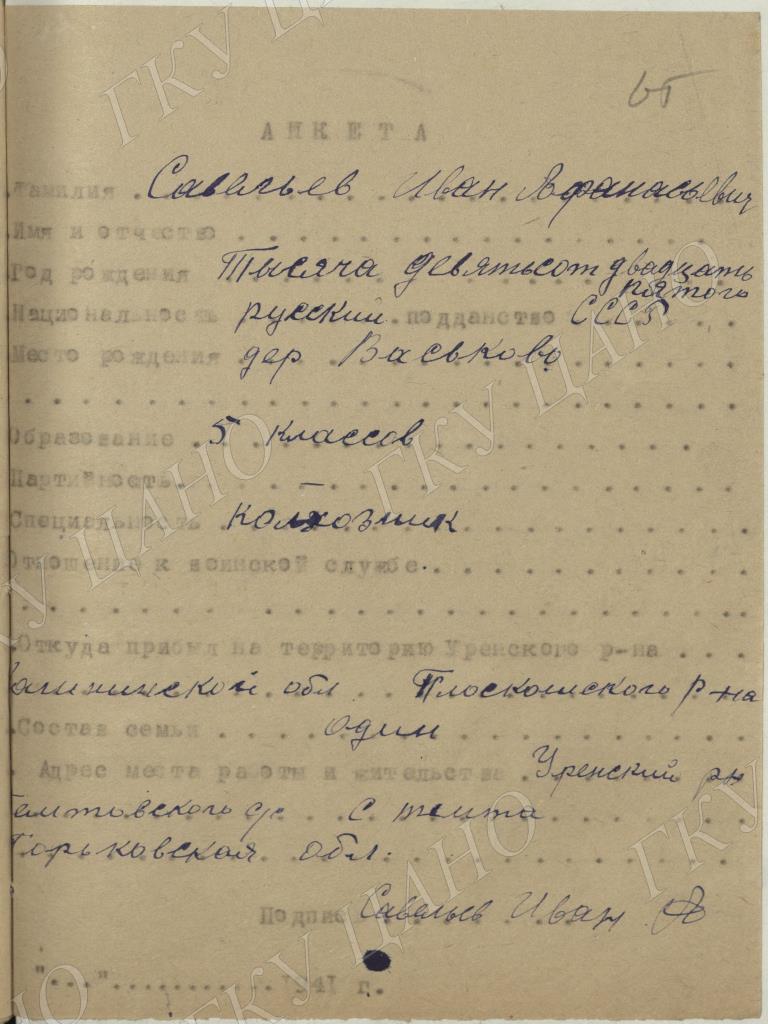 65
АНКЕТА
Фамилия Савельев Иван Афанасьевич
Имя и отчество
Год рождения Тысяча девятьсот двадцать
пятого
Национальность русский подданство СССР
Место рождения дер Васьково
Образование 5 классов
Партийность
Специальность колхозник
Отношение к воинской службе
Откуда прибыл на территорию Уренского р-на
Калининской обл Плоскошского р-на
Состав семьи один
Адрес места работы и жительства Уренский рн
с/с с темта
Горьковская обл.
Подпис Савельев Иван А
"..."...........1941 г.
ГКУ ЦАНО